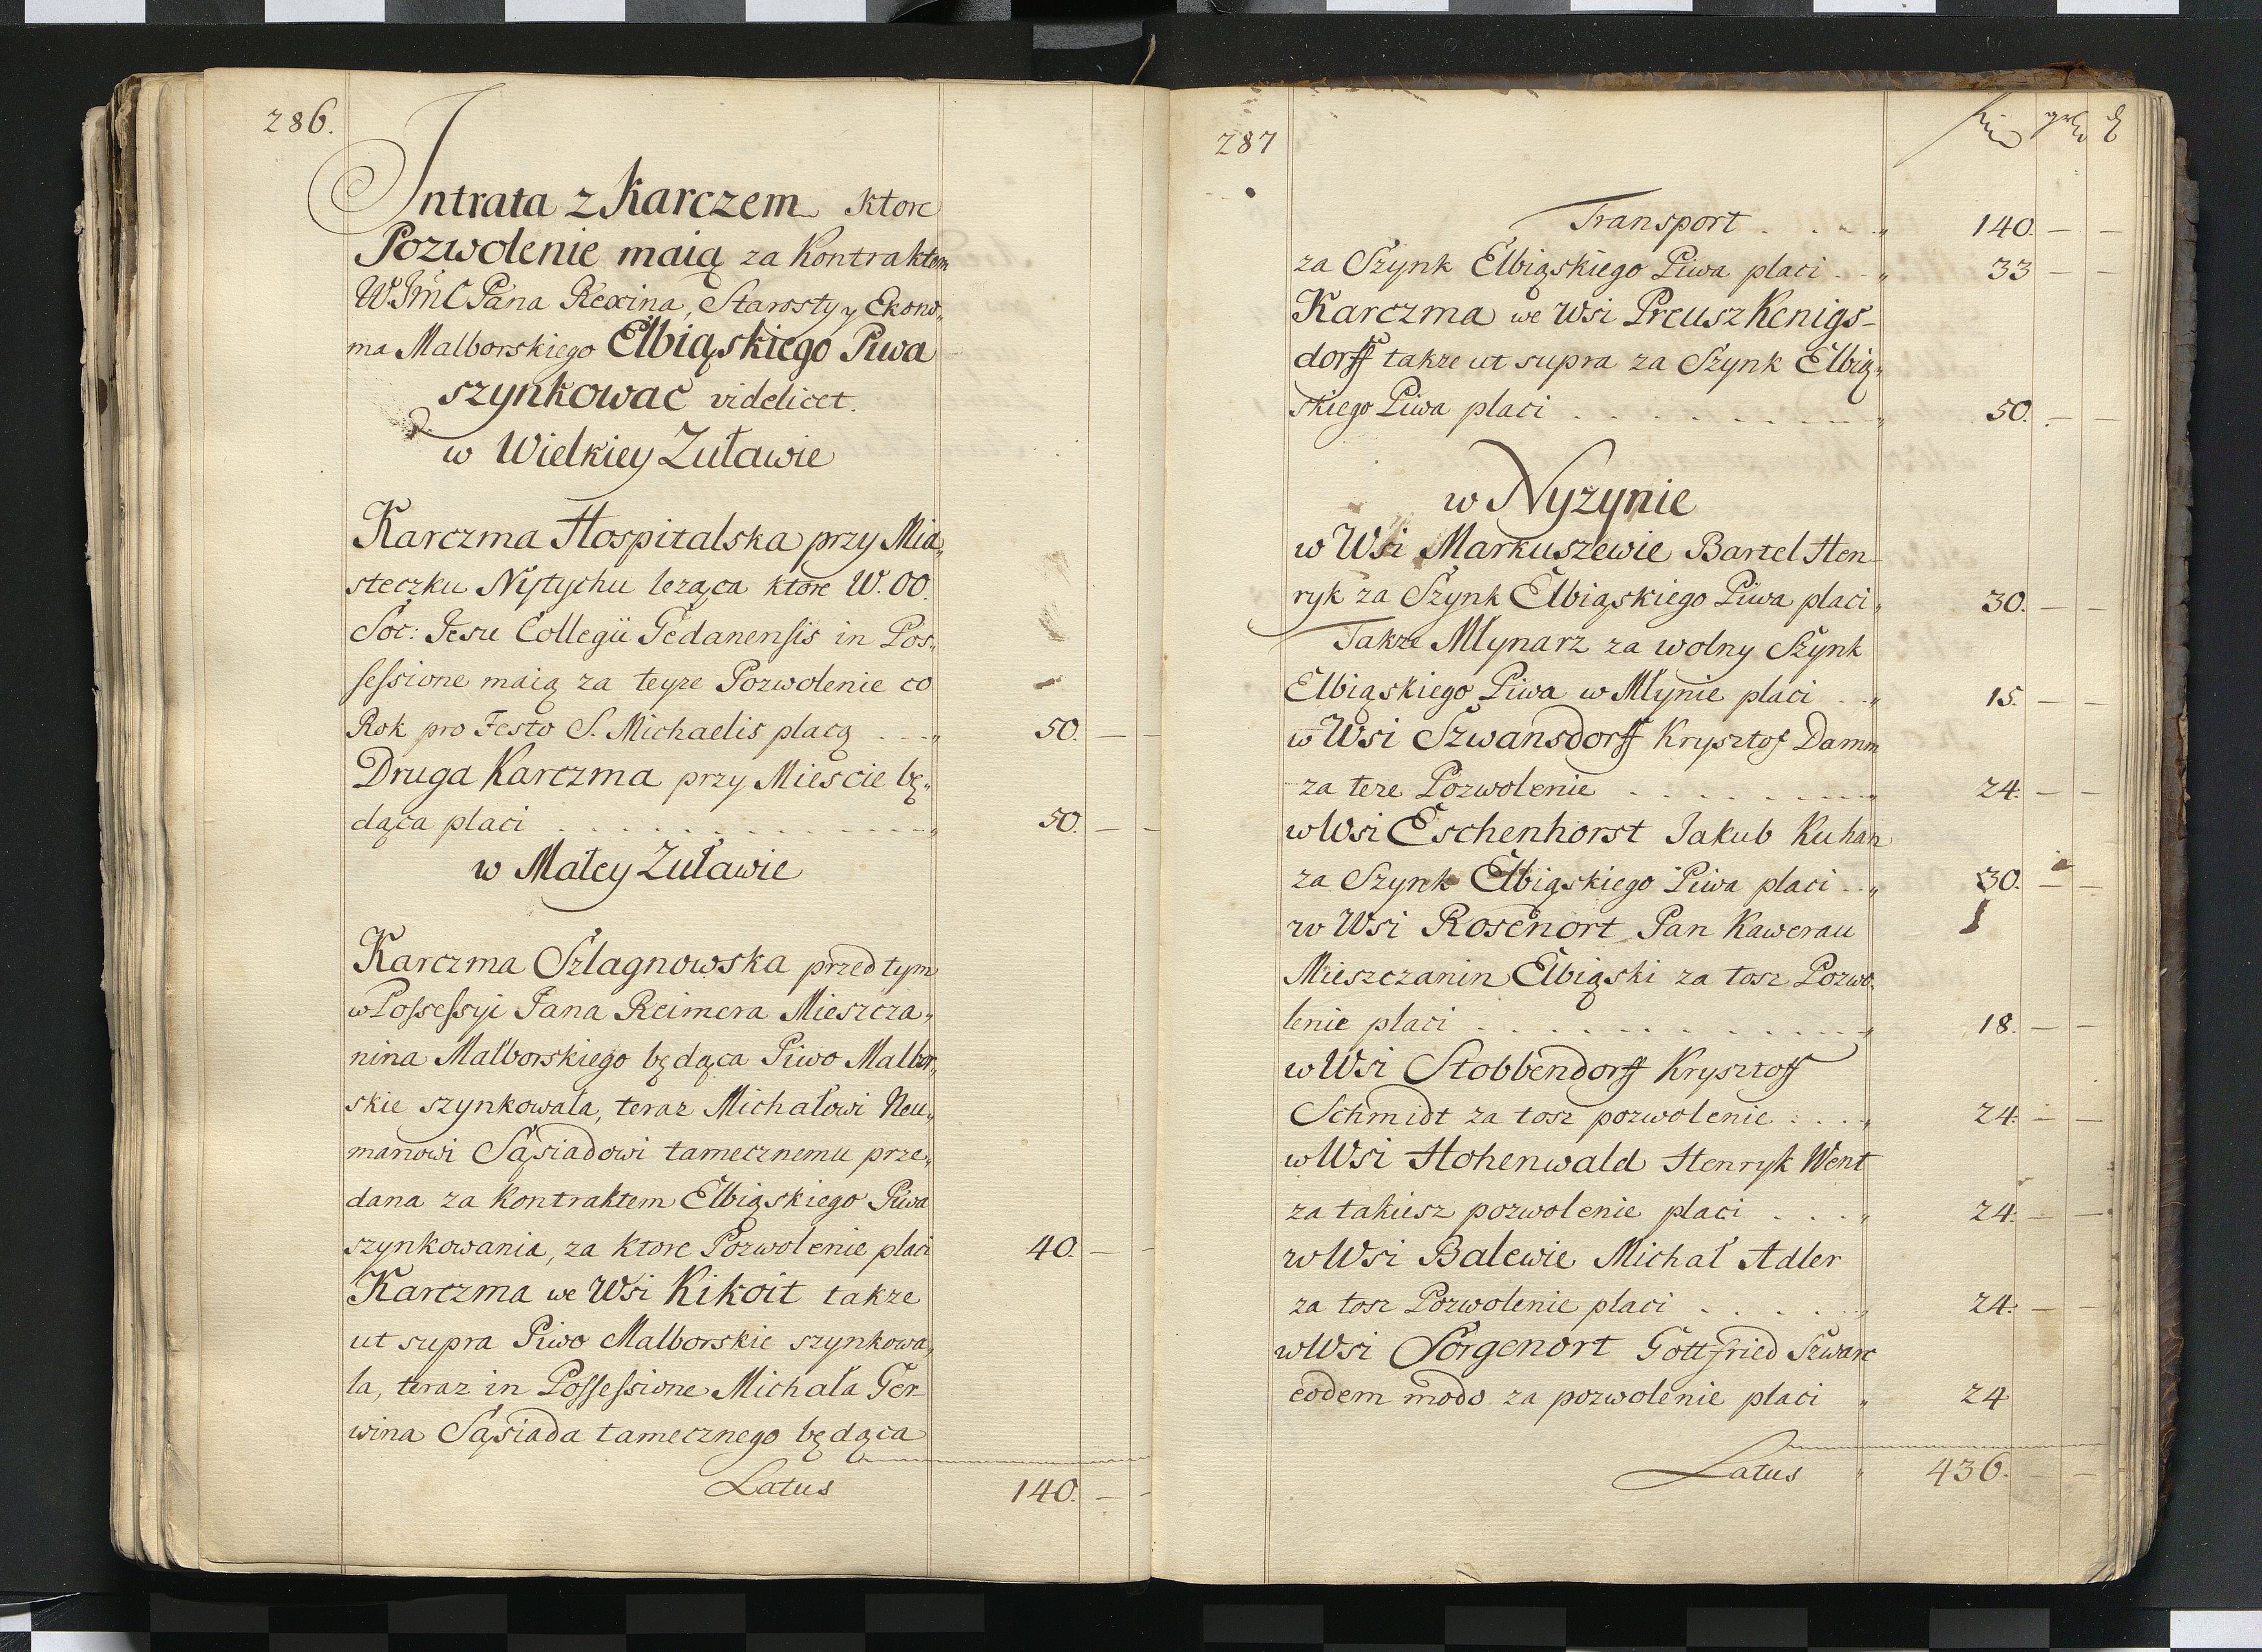 286.
Intrata z Karczem ktore
Pozwolenie maią za Kontraktem
WJmC Pana Rexina, Starosty y Ekono„
ma Malborskiego Elbiąskiego Piwa
szynkowac videlicet.
w Wielkiey Zuławie
Karczma Hospitalska przy Mia„
steczku Nystychu leząca ktore W. OO.
Soc: Jesu Collegii Gedanensis in Pos„
sessione maią za teyze Pozwolenie co
Rok pro Festo S. Michaelis płacą . . . „ 50. — —
Druga Karczma przy Miescie bę„
dąca płaci . . . . . . . . . . . . „ 50. — —
w Małey Zuławie
Karczma Szlagnowska przed tym
w Possessyi Jana Reimera Mieszcza„
nina Malborskiego będąca Piwo Malbor„
skie szynkowała, teraz Michałowi Neu„
manowi Sąsiadowi tamecznemu prze„
dana za Kontraktem Elbiąskiego Piwa
szynkowania, za ktore Pozwolenie płaci 40. — —
Karczma we Wsi Kikoit takze
ut supra Piwo Malborskie szynkowa„
ła, teraz in Possessione Michała Ger-
wina Sąsiada tamecznego będąca
Latus 140. — —
287
Transport . . . . „ 140. — —
za Szynk Elbiąskiego Piwa płaci . . „ 33 — —
Karczma we Wsi Preusz Kenigs-
dorff takze ut supra za Szynk Elbią„
skiego Piwa płaci . . . . . . . . „ 50. — —
w Nyzynie
w Wsi Markuszewie Bartel Hen-
ryk za Szynk Elbiąskiego Piwa płaci „ 30. — —
Takze Młynarz za wolny Szynk
Elbiąskiego Piwa w Młynie płaci . . „ 15. — —
w Wsi Szwansdorff Krysztof Damm
za teze Pozwolenie . . . . . . . . „ 24. — —
w Wsi Eschenhorst Jakub Kuhan
za Szynk Elbiąskiego Piwa płaci . . „ 30. — —
w Wsi Rosenort Pan Kawerau
Mieszczanin Elbiąski za tosz Pozwo„
lenie płaci . . . . . . . . . . . „ 18. — —
w Wsi Stobbendorff Krysztoff
Schmidt za tosz pozwolenie . . . . „ 24. — —
w Wsi Hohenwald Henryk Went
za takiesz pozwolenie płaci . . . „ 24. — —
w Wsi Balewie Michał Adler
za tosz Pozwolenie płaci . . . . . „ 24. — —
w Wsi Sorgenort Gottfried Szwarc
eodem modo za pozwolenie płaci „ 24
Latus „ 436. — —